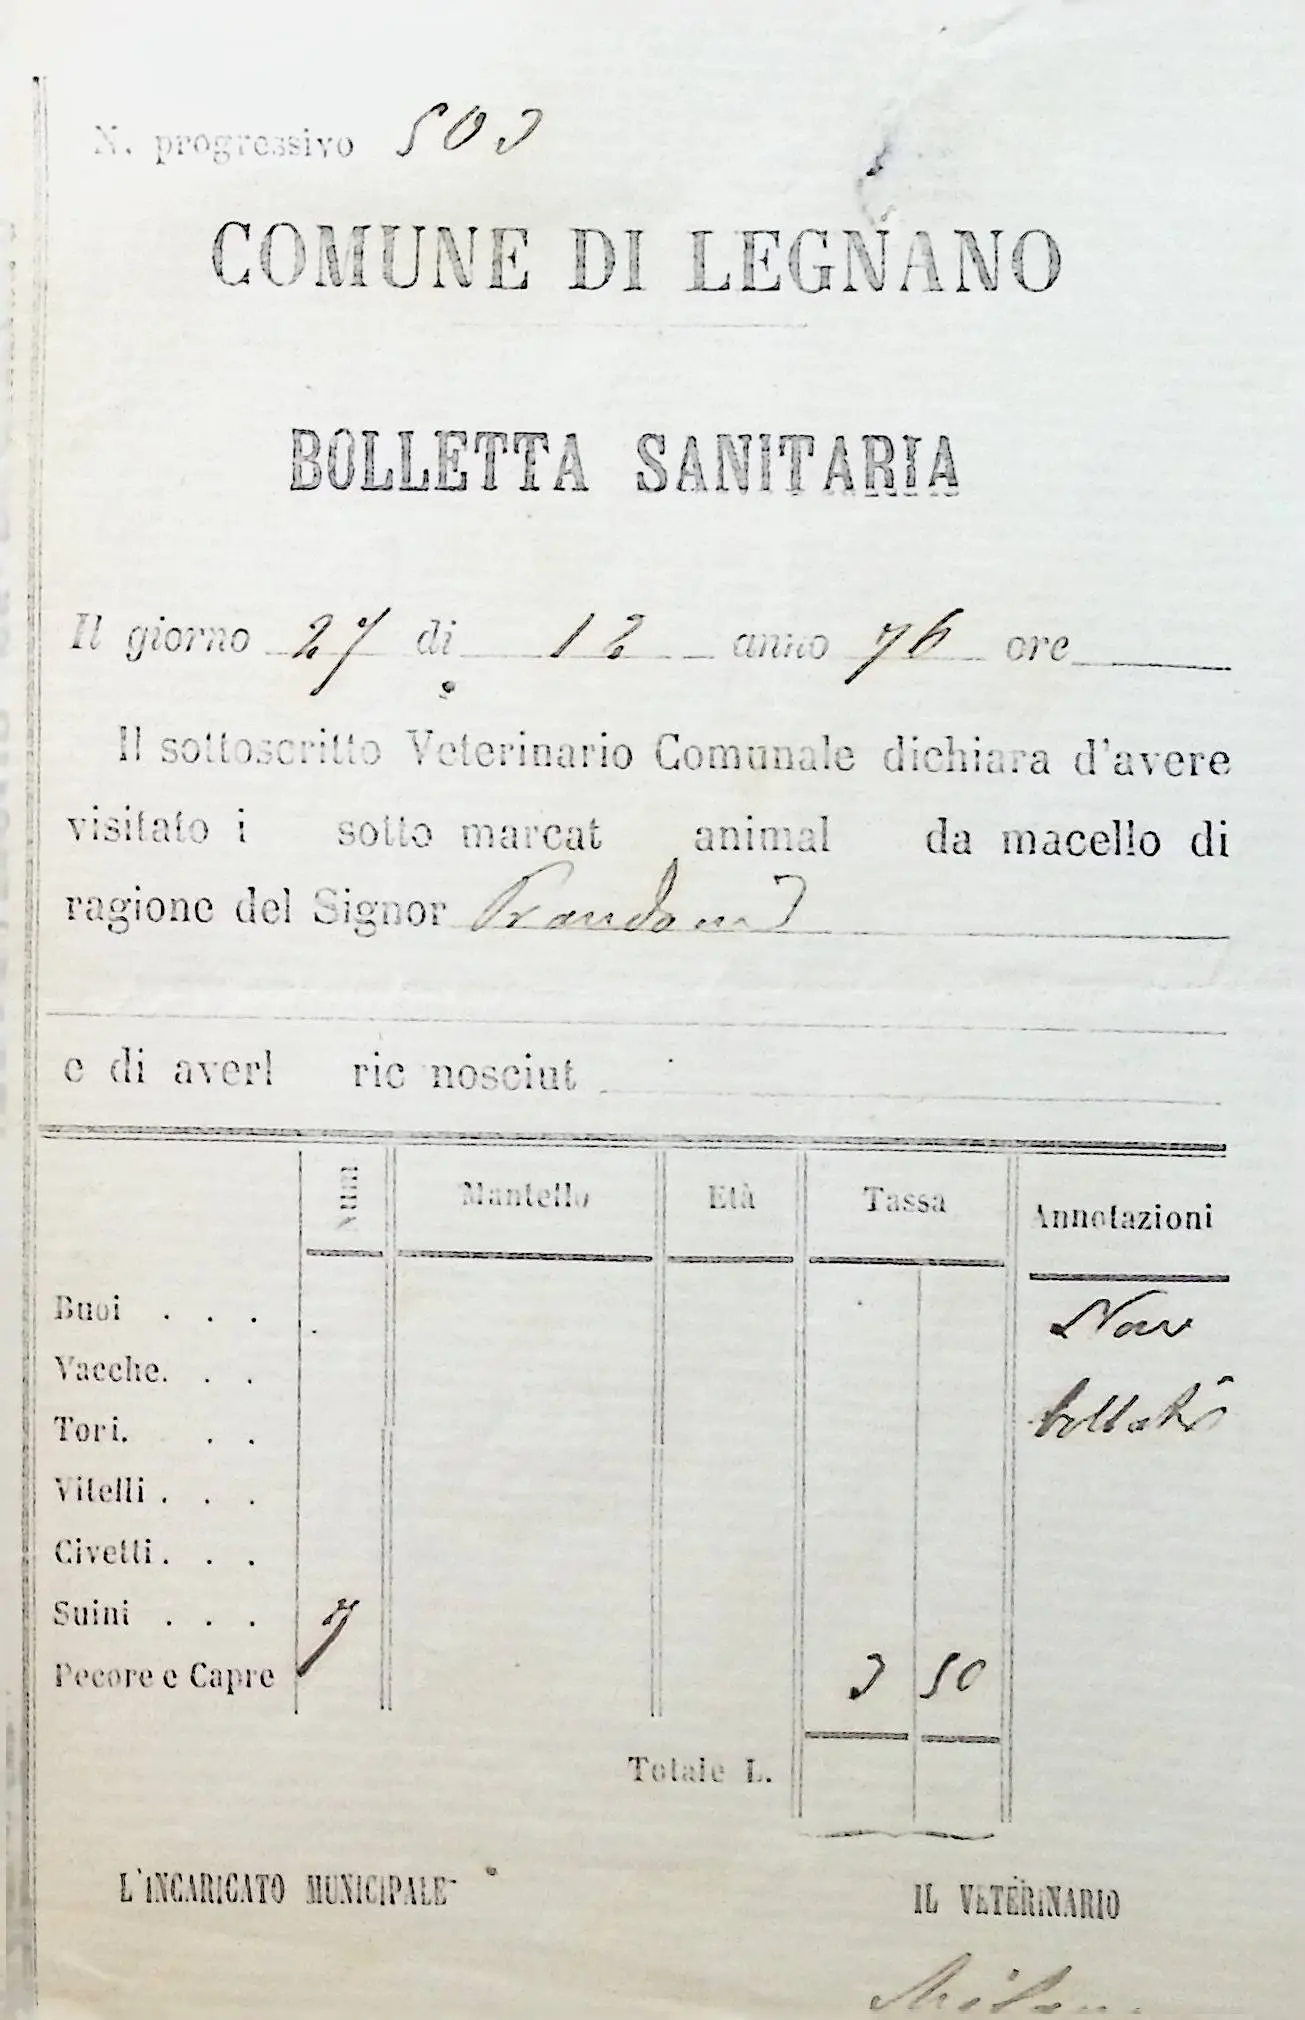 N. progressivo 503
COMUNE DI LEGNANO
BOLLETTA SANITARIA
Il giorno 27 di 12 anno 76 ore
Il sottoscritto Veterinario Comunale dichiara d'avere
visitato i sotto marcat animal da macello di
ragione del Signor Prandoni
e di averl ric nosciut
Num Mantello Età Tassa Annotazioni
Buoi . . . Non
Vacche. . .
Tori. . . bollati
Vitelli . . .
Civetti . . .
Suini . . . 7
Pecore e Capre 3 50
Totale L.
L'INCARICATO MUNICIPALE IL VETERINARIO